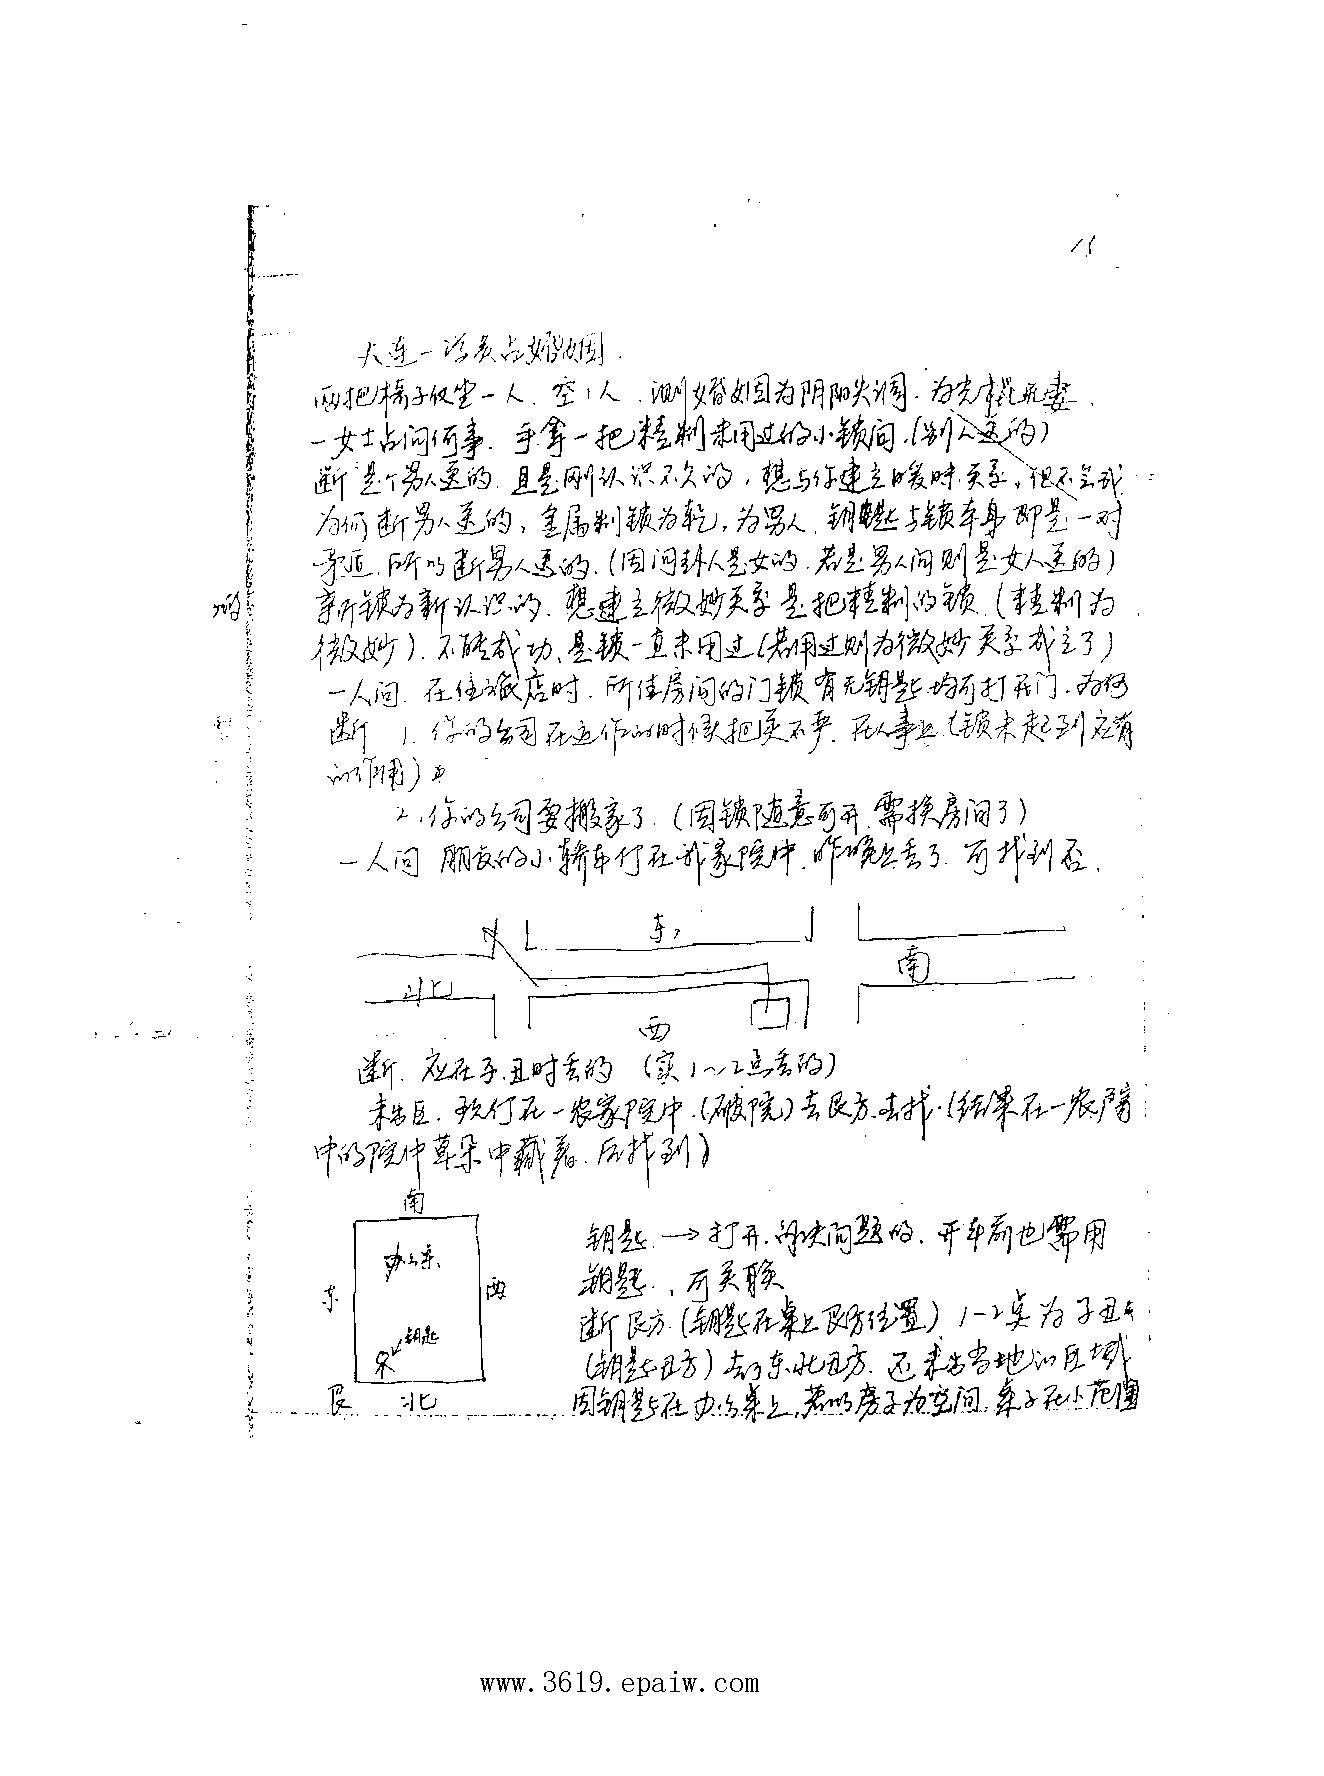 15
大连一学员占婚姻.
两把椅子仅坐一人.空1人.测婚姻因为阴阳失调.为光棍无妻.
一女士占问何事.手拿一把精制未用过的小锁问.(别人送的)
断是个男人送的.且是刚认识不久的,想与你建立暧昧关系,但不会成
为何断男人送的,金属制锁为乾,为男人.钥匙与锁本身即是一对
矛盾.所以断男人送的.(因问卦人是女的.若是男人问则是女人送的)
新锁为新认识的.想建立微妙关系是把精制的锁.(精制为
微妙).不能成功.是锁一直未用过(若用过则为微妙关系成立了)
一人问.在住旅店时.所住房间的门锁有无钥匙均可打开门.为何
断 1.你的公司在运作的时候把关不严.在人事上(锁未起到应有
的作用)
2.你的公司要搬家了.(因锁随意可开.需换房间了)
一人问 朋友的小轿车停在我家院中.昨晚上丢了.可找到否.
东
南
北
西
断.应在子.丑时丢的 (实1~2点丢的)
未出区.现停在一农家院中.(破院)去艮方.去找.(结果在一农户
中的院中草朵中藏着.后找到)
南
办公桌
东
西
钥匙
艮 北
钥匙.→打开.解决问题的.开车前也需用
钥匙.,可关联
断艮方.(钥匙在桌上艮方位置) 1-2点为子丑
(钥匙丑方)去了东北丑方.还未出当地的区域
因钥匙在办公桌上.若以房子为空间.桌子在小范围
www.3619.epaiw.com